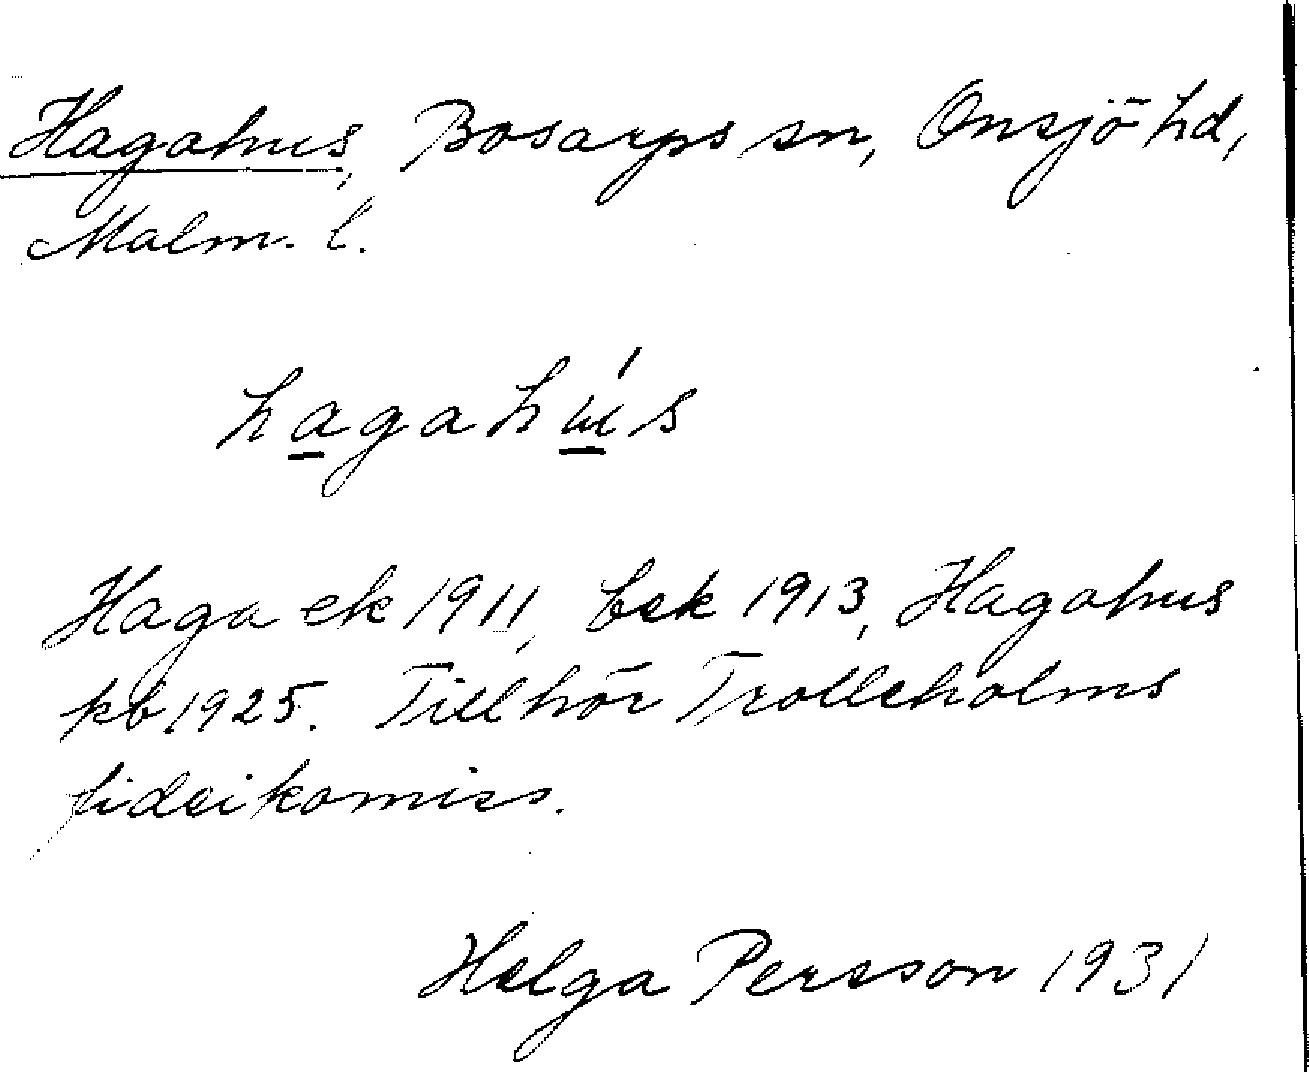 Hagahus, Bosarps sn, Onsjö hd,
Malm. l.
hagahús
Haga ek 1911, bek 1913, Hagahus
kb 1925. Tillhör Trolleholms
fideikomiss.
Helga Persson 1931